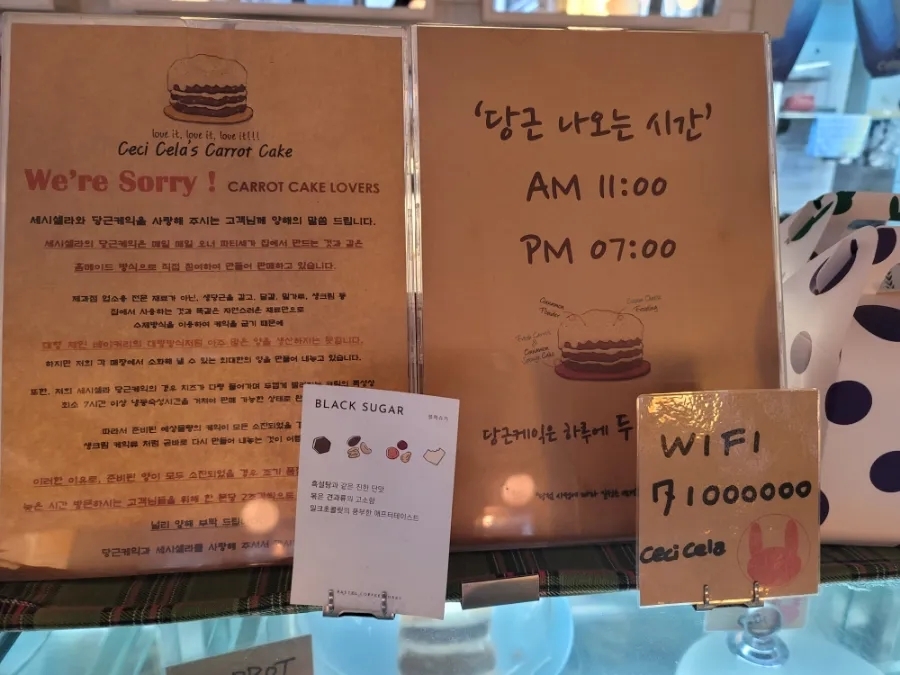 love it, love it, love it!!!
Ceci Cela's Carrot Cake
We're Sorry ! CARROT CAKE LOVERS
세시셀라와 당근케익을 사랑해 주시는 고객님께 양해의 말씀 드립니다.
세시셀라의 당근케익은 매일 매일 오너 파티셰가 집에서 만드는 것과 같은
홈메이드 방식으로 직접 참여하여 만들어 판매하고 있습니다.
제과점 업소용 전문 재료가 아닌, 생당근을 갈고, 달걀, 밀가루, 생크림 등
집에서 사용하는 것과 똑같은 자연스러운 재료만으로
수제방식을 이용하여 케익을 굽기 때문에
대형 체인 베이커리의 대량방식처럼 아주 많은 양을 생산하지는 못합니다.
하지만 저희 각 매장에서 소화해 낼 수 있는 최대한의 양을 만들어 내놓고 있습니다.
또한, 저희 세시셀라 당근케익의 경우 치즈가 다량 들어가며 두껍게
최소 7시간 이상 냉동숙성시간을 거쳐야 판매 가능한 상태로
따라서 준비된 예상물량의 케익이 모두 소진되었을
생크림 케익류 처럼 곧바로 다시 만들어 내놓는 것이
이러한 이유로, 준비된 양이 모두 소진되었을 경우 조기
늦은 시간 방문하시는 고객님들을 위해 한 분당 2조각
널리 양해 부탁
당근케익과 세시셀라를 사랑해 주셔서
'당근 나오는 시간'
AM 11:00
PM 07:00
Cinnamon
Powder
Cream Cheese
Frosting
Fresh Carrot
&
Cinnamon
Layer Cake
당근케익은 하루에 두
BLACK SUGAR
블랙슈가
흑설탕과 같은 진한 단맛
볶은 견과류의 고소함
밀크초콜릿의 풍부한 애프터테이스트
WIFI
71000000
Ceci Cela